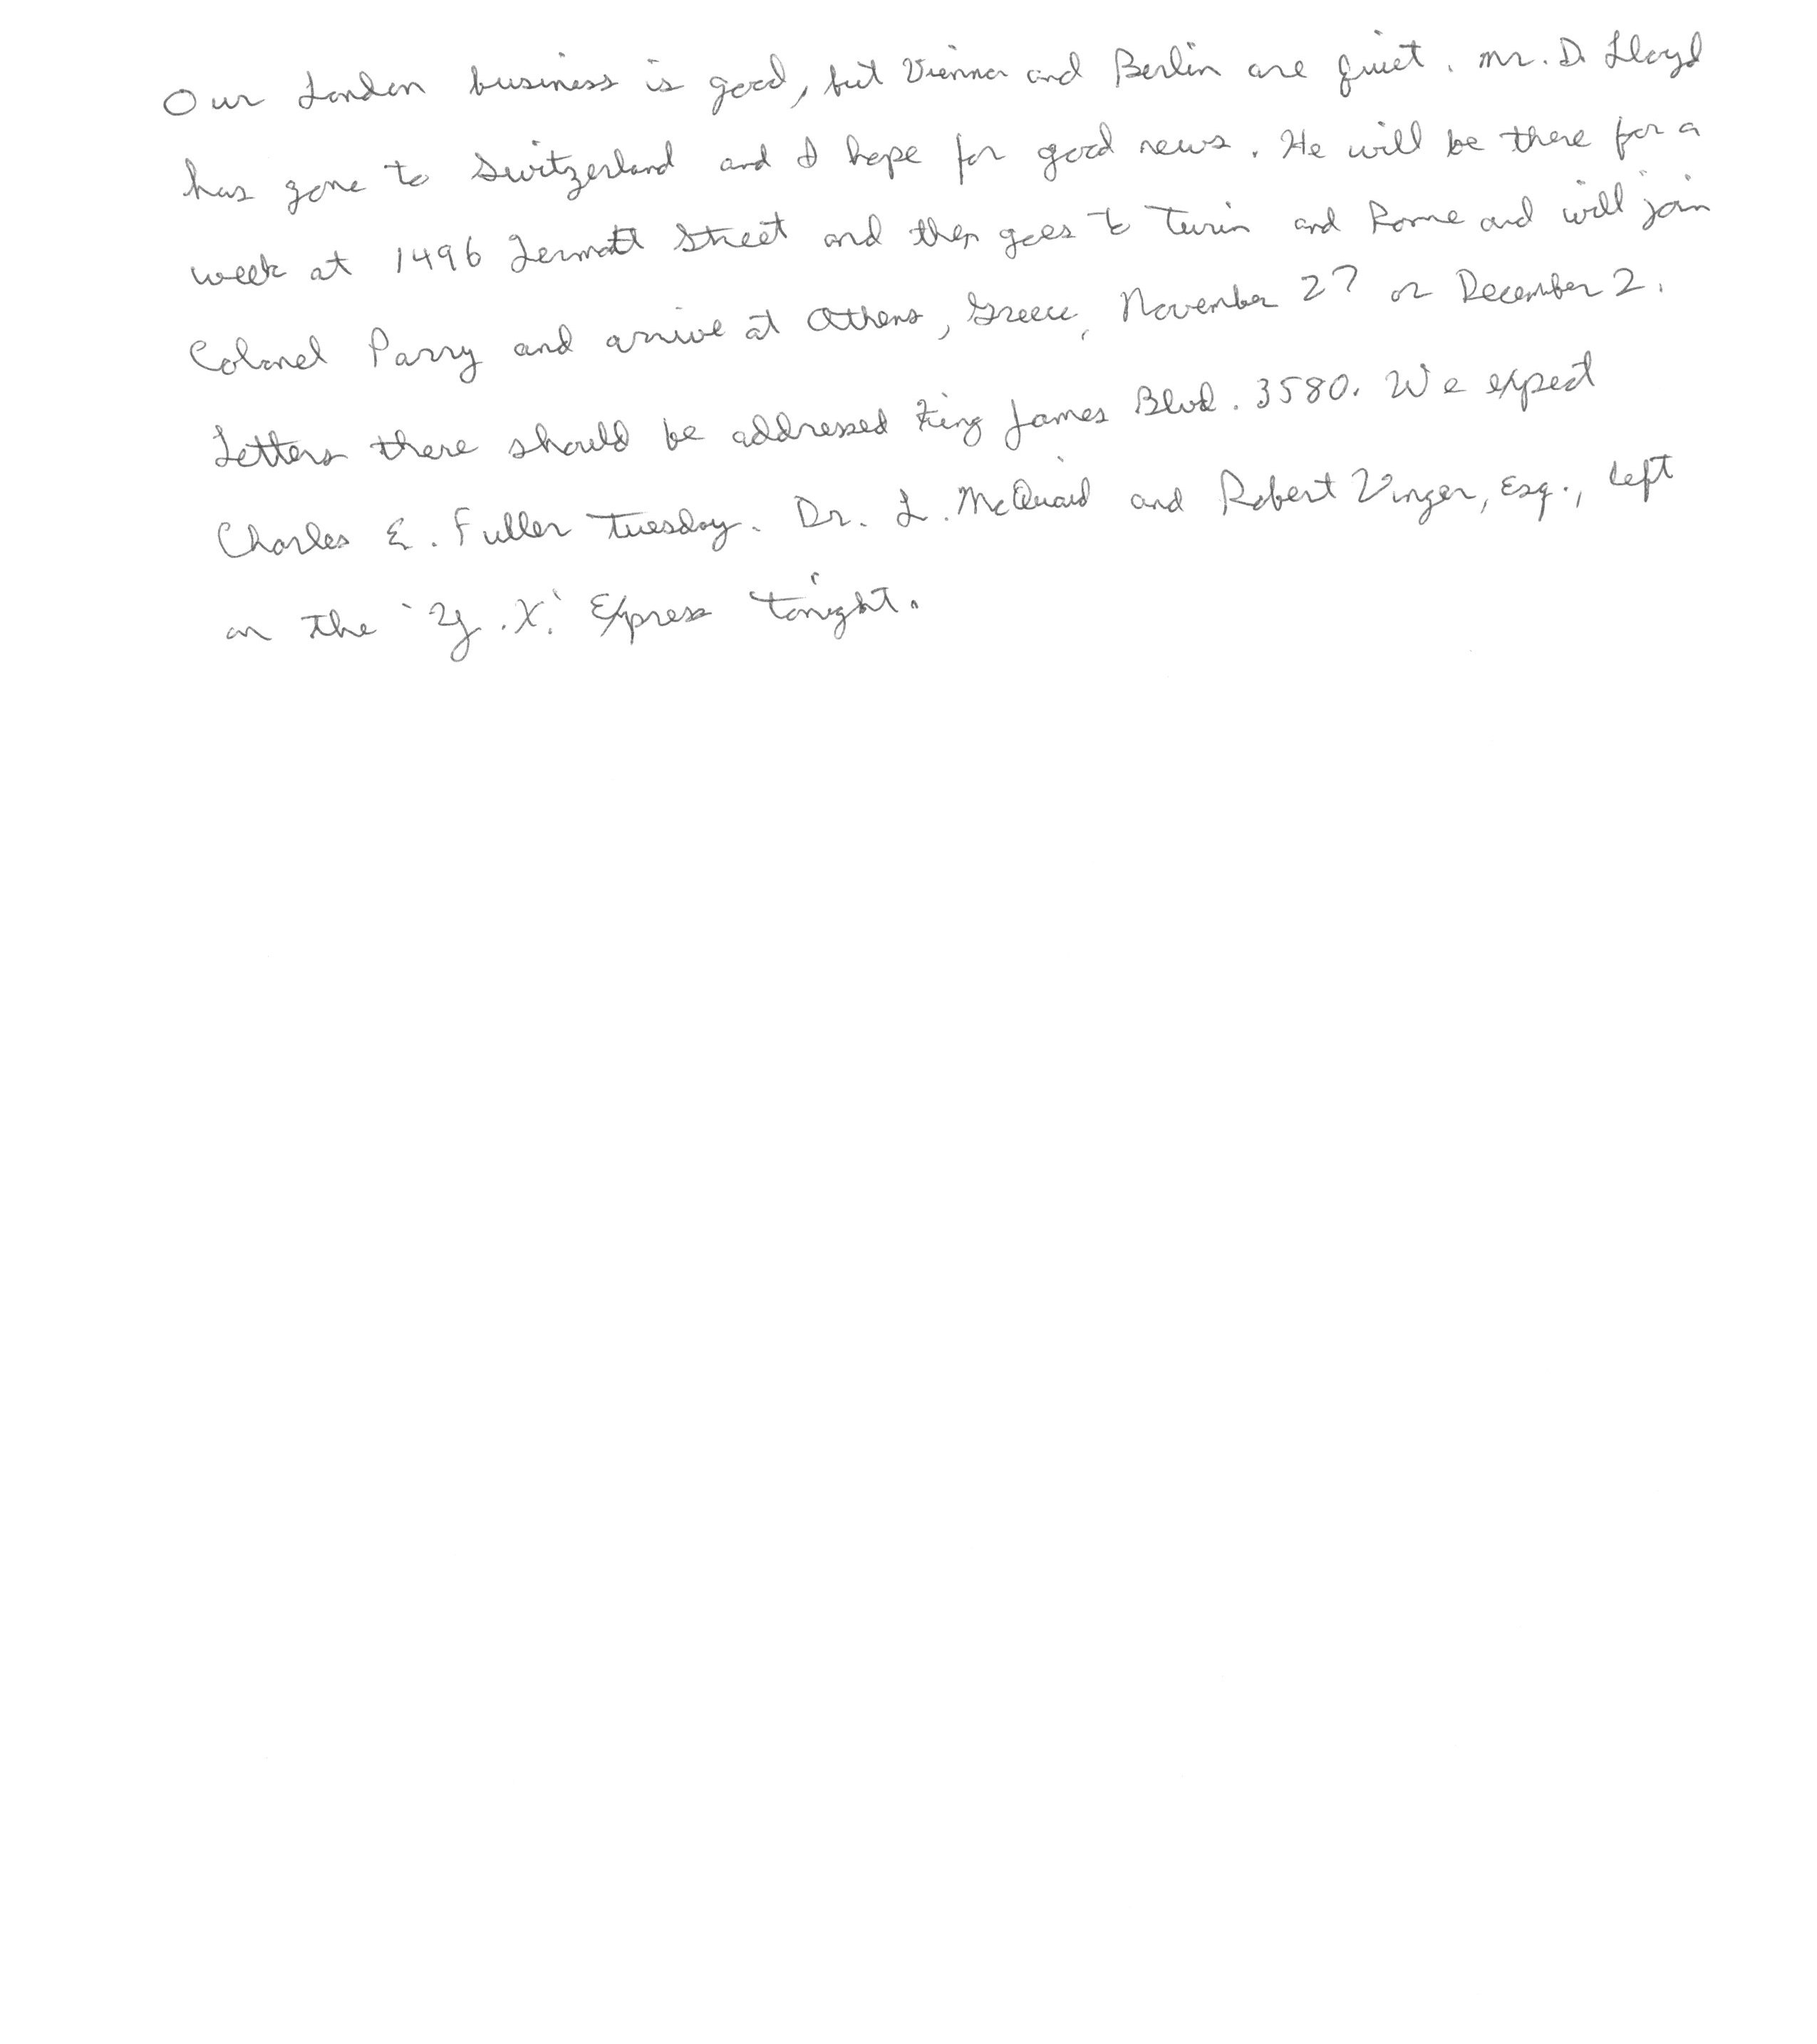 Our London business is good, but Vienna and Berlin are quiet. Mr. D. Lloyd
has gone to Switzerland and I hope for good news. He will be there for a
week at 1496 Zermott Street and then goes to Turin and Rome and will join
Colonel Parry and arrive at Athens, Greece, November 27 or December 2.
Letters there should be addressed King James Blvd. 3580. We expect
Charles E. Fuller Tuesday. Dr. L. McQuaid and Robert Unger, Esq., left
on the 'Y.X.' Express tonight.